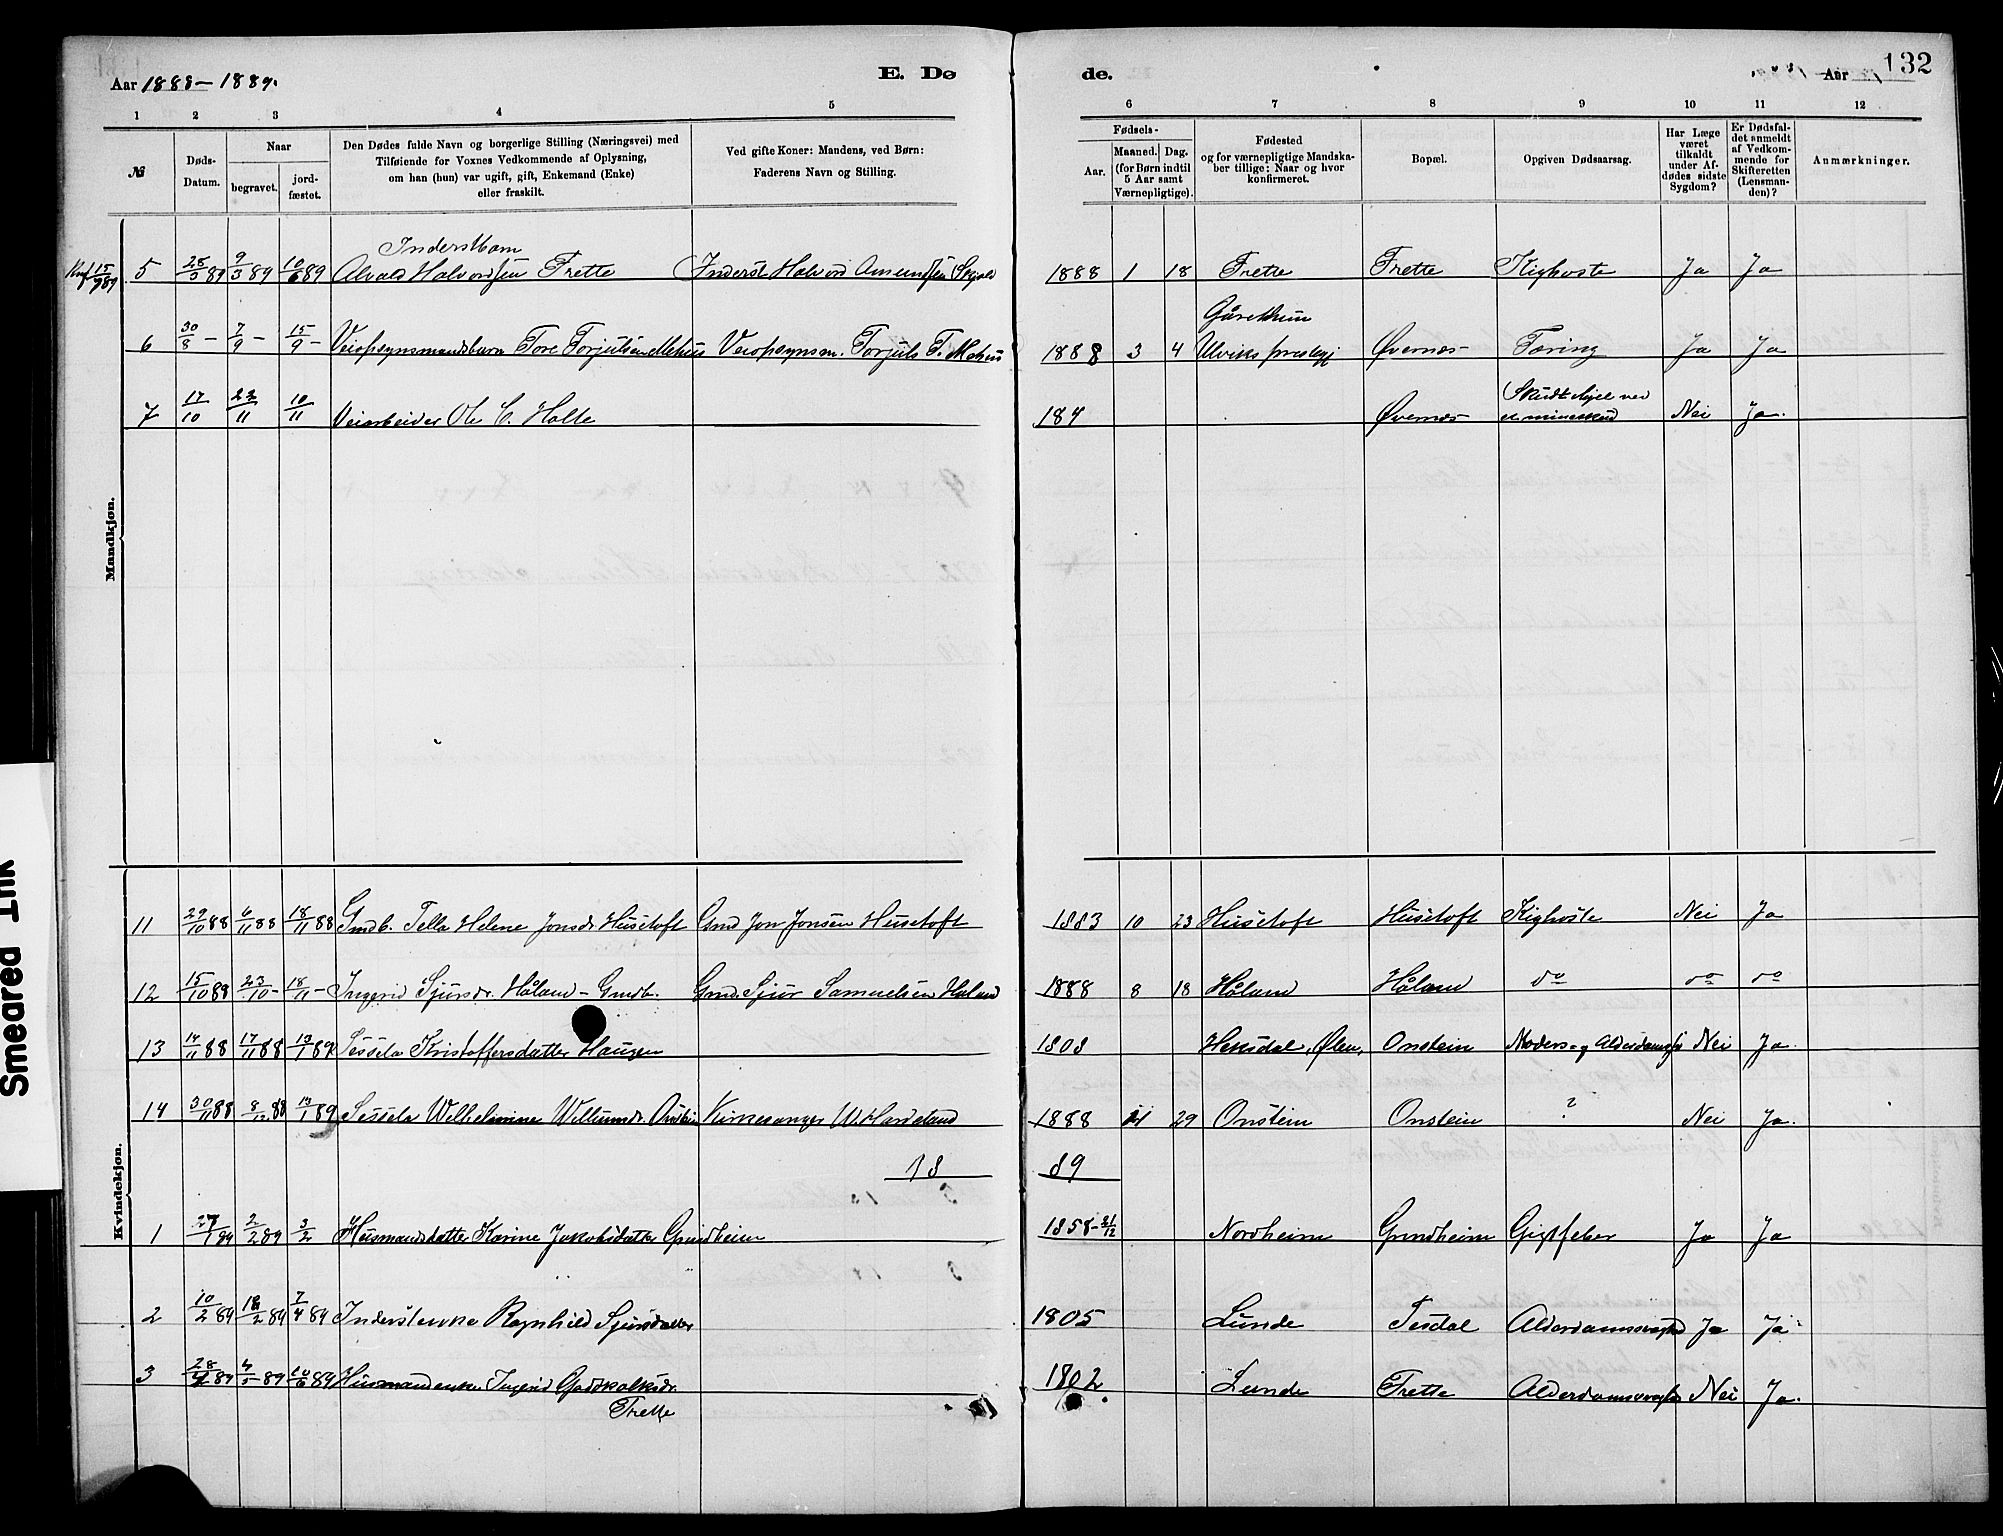 Aar 1888-1889.
E. Dø
de.
Aar
132
1 2 3 4 5 6 7 8 9 10 11 12
№
Døds-Datum.
Naar
begravet.
jord-fæstet.
Den Dødes fulde Navn og borgerlige Stilling (Næringsvei) med
Tilføiende for Voxnes Vedkommende af Oplysning,
om han (hun) var ugift, gift, Enkemand (Enke)
eller fraskilt.
Ved gifte Koner: Mandens, ved Børn:
Faderens Navn og Stilling.
Fødsels-
Aar.
Maaned. Dag.
(for Børn indtil
5 Aar samt
Værnepligtige).
Fødested
og for værnepligtige Mandska-
ber tillige: Naar og hvor
konfirmeret.
Bopæl.
Opgiven Dødsaarsag.
Har Læge
været
tilkaldt
under Af-
dødes sidste
Sygdom?
Er Dødsfal-
det anmeldt
af Vedkom-
mende for
Skifteretten
(Lensman-
den)?
Anmærkninger.
Mandkjøn.
5 28/3 89 9/3 89 10/6 89 Alvald Halvordsen Trette Inderst Halvord Amundsen 1888 1 18 Trette Trette Kighoste Ja Ja
6 30/8 - 7/9 - 15/9 - Veiopsynsmandsbarn Tore Torjulsen Mehus Veiopsynsm. Torjuls T. Mehus 1888 3 4 Ulviks præstegj Øvernes Tæring Ja Ja
7 17/10 23/11 10/11 Veiarbeider Ole C. Holte 184 Øvernes Skudt ihjel ved et mineskud Nei Ja.
Kvindekjøn.
11 29/10 88 6/11 88 18/11 88 Gmdb. Tella Helene Jonsdr Husetoft Gmd Jon Jonsen Husetoft 1883 10 23 Husetoft Husetoft Kighoste Nei Ja
12 15/10 88 23/10 - 18/11 - Ingerid Sjursdr. Håland - Gmdb. Gmd. Sjur Samuelsen Haland 1888 8 18 Håland Håland do do do
13 14/11 88 17/11 88 13/1 89 Sessela Kristoffersdatter Haugen 1808 Ølen, Onstein Alderdomssv Nei Ja.
14 30/11 88 8/12 88 13/1 89 Sessela Wilhelmine Kirkesanger W. Hardeland 1888 11 29 Onstein Onstein ? Nei Ja.
18 89
1 27/1 89 2/2 89 3/2 Husmandsdatter Karine Jakobsdatter Grindheim 1858-31/12 Nordheim Grindheim Gigtfeber Ja Ja
2 10/2 89 18/2 89 7/4 89 Inderstenke Ragnhild Sjursdatter 1805 Lunde Tesdal Alderdomssvaghed Ja Ja
3 28/4 89 4/5 89 10/6 89 Husmandenke Ingerid Godskalksdr. 1802 Lunde Trette Alderdomssvagh Nei Ja.
Trette
Smeared Ink